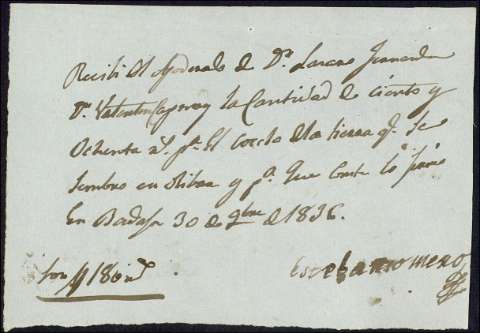 Recibi del Apoderado de Dn. Lazaro Fernandz
Dn. Valentin la Cantidad de ciento y
Ochenta rs. pr. El coste de la tierra qe. se
sembro en Ribera y pa. que Conste lo firmo
En 30 de 9bre de 1836.
Son 180 rs.
Esteban Romero